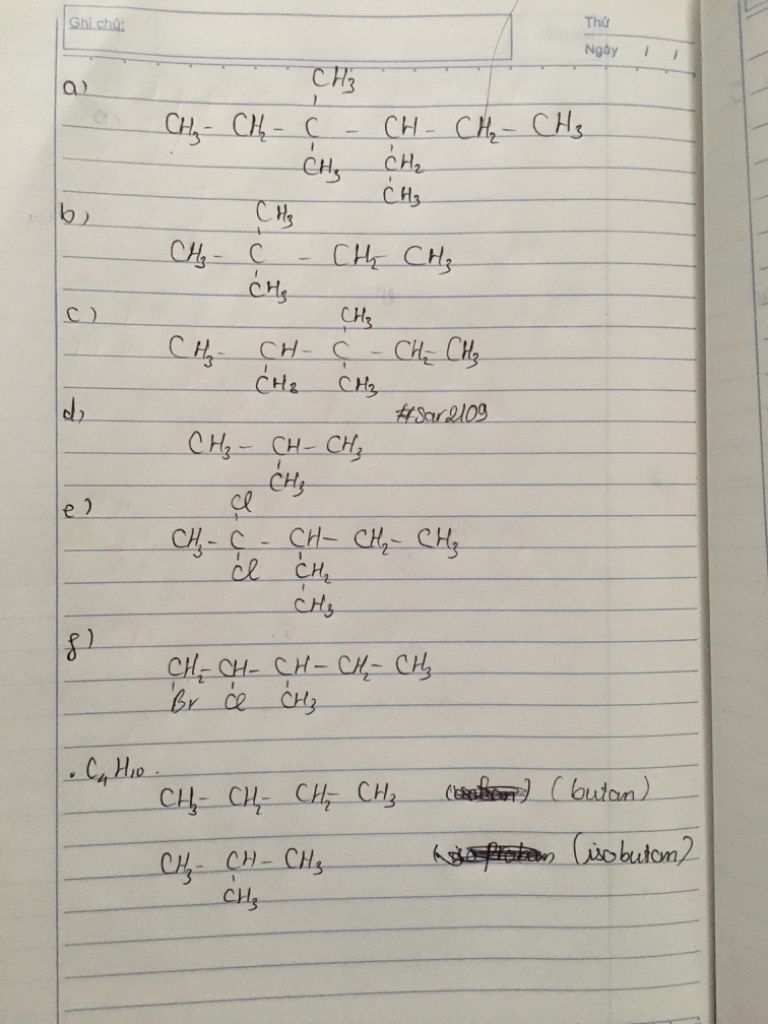 Ghi chú:
Thứ
Ngày / /
a)
CH₃
CH₃- CH₂- C - CH - CH₂- CH₃
CH₃ CH₂
CH₃
b)
CH₃
CH₃- C - CH₂- CH₃
CH₃
c)
CH₃
CH₃- CH- C - CH₂- CH₃
CH₃ CH₃
d)
#Sar2109
CH₃- CH- CH₃
CH₃
e)
Cl
CH₃- C - CH- CH₂- CH₃
Cl CH₂
CH₃
f)
CH₂- CH- CH- CH₂- CH₃
Br Cl CH₃
. C₄H₁₀.
CH₃- CH₂- CH₂- CH₃ (butan)
CH₃- CH- CH₃ (isobutan)
CH₃